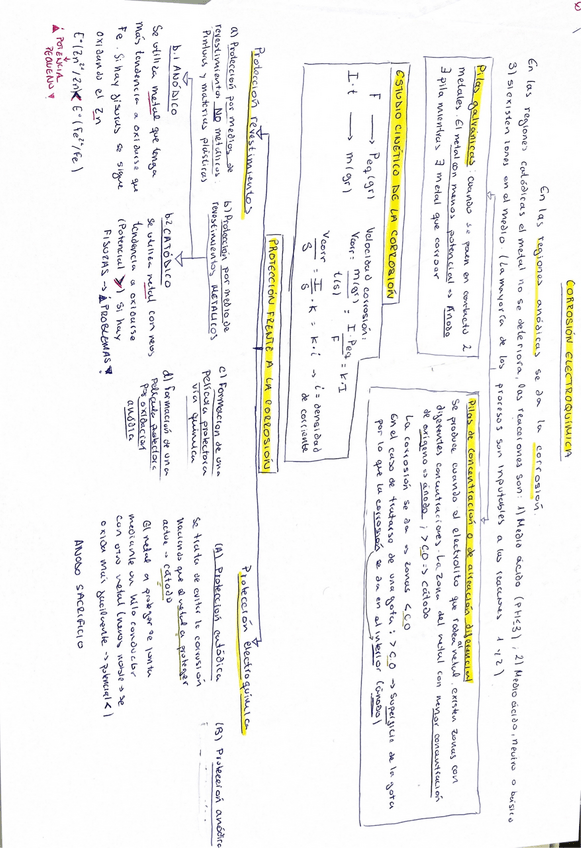 CORROSIÓN ELECTROQUÍMICA
En las regiones anódicas se da la corrosión.
En las regiones catódicas el metal no se deteriora, las reacciones son: 1) Medio ácido (PH<3), 2) Medio ácido, neutro o básico
3) Si existen iones en el medio (La mayoría de los procesos son imputables a las reacciones 1 y 2)
Pilas galvánicas: cuando se ponen en contacto 2
metales. El metal con menos potencial → Ánodo
∃ pila mientras ∃ metal que corroer
Pilas de concentración o de aireación diferencial
Se produce cuando el electrolito que rodea al metal, existen zonas con
diferentes concentraciones. La zona del metal con menor concentración
de oxígeno → ánodo; > CO → cátodo
La corrosión se da → zonas < CO
En el caso de tratarse de una gota: > CO → superficie de la gota
por lo que la corrosión se da en el interior (ánodo)
ESTUDIO CINÉTICO DE LA CORROSIÓN
F → Peq (gr)
I·t → m(gr)
Velocidad corrosión:
Vcorr: m(gr)/t(s) = I Peq/F = K·I
Vcorr/S = I/S · K = K·i → i = densidad
de corriente
PROTECCIÓN FRENTE A LA CORROSIÓN
Protección revestimientos
a) Protección por medios de
revestimientos NO metálicos
Pinturas y materias plásticas
b) Protección por medio de
revestimientos METÁLICOS
b.1 ANÓDICO
Se utiliza metal que tenga
más tendencia a oxidarse que
Fe. Si hay fisuras se sigue
oxidando el Zn
E°(Zn²⁺/Zn) < E°(Fe²⁺/Fe)
POTENCIAL
PEQUEÑO
b2 CATÓDICO
Se utiliza metal con menos
tendencia a oxidarse
(Potencial >) Si hay
FISURAS → ¡PROBLEMAS!
c) Formación de una
película protectora
vía química
d) Formación de una
película protectora
por oxidación
anódica
Protección electroquímica
(A) Protección catódica
Se trata de evitar la corrosión
hacemos que el metal a proteger
actúe → cátodo
El metal a proteger se junta
mediante un hilo conductor
con otro metal (menos noble → se
oxida más fácilmente → potencial <)
ÁNODO SACRIFICIO
(B) Protección anódica